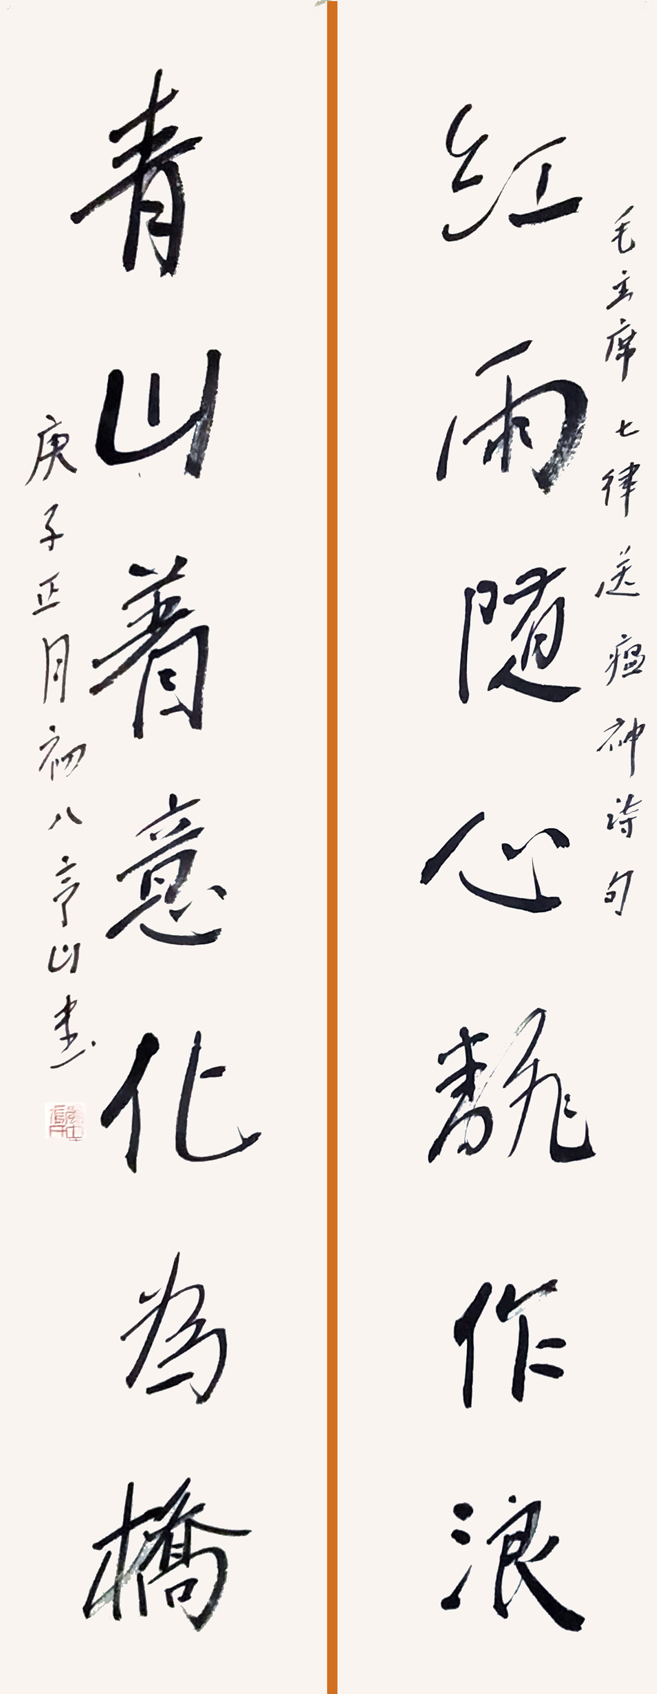 毛主席七律送瘟神诗句
红雨随心翻作浪
青山着意化為橋
庚子正月初八亭山书